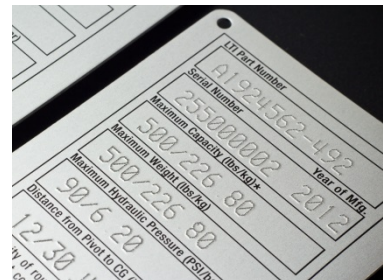 er)
LTI Part Number
A1924562-492
Serial Number
Year of Mfg.
255000002 2012
Maximum Capacity (lbs/kg)*
500/226 80
Maximum Weight (lbs/kg)
500/226 80
Maximum Hydraulic Pressure (PSI/b
90/6 20
Distance from Pivot to CG (
12/30